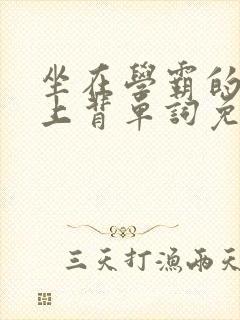 坐在學霸的
上背單詞免
三天打漁兩天